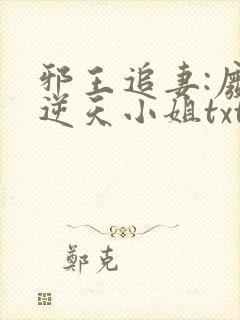 邪王追妻:廢
逆天小姐txt
鄭克